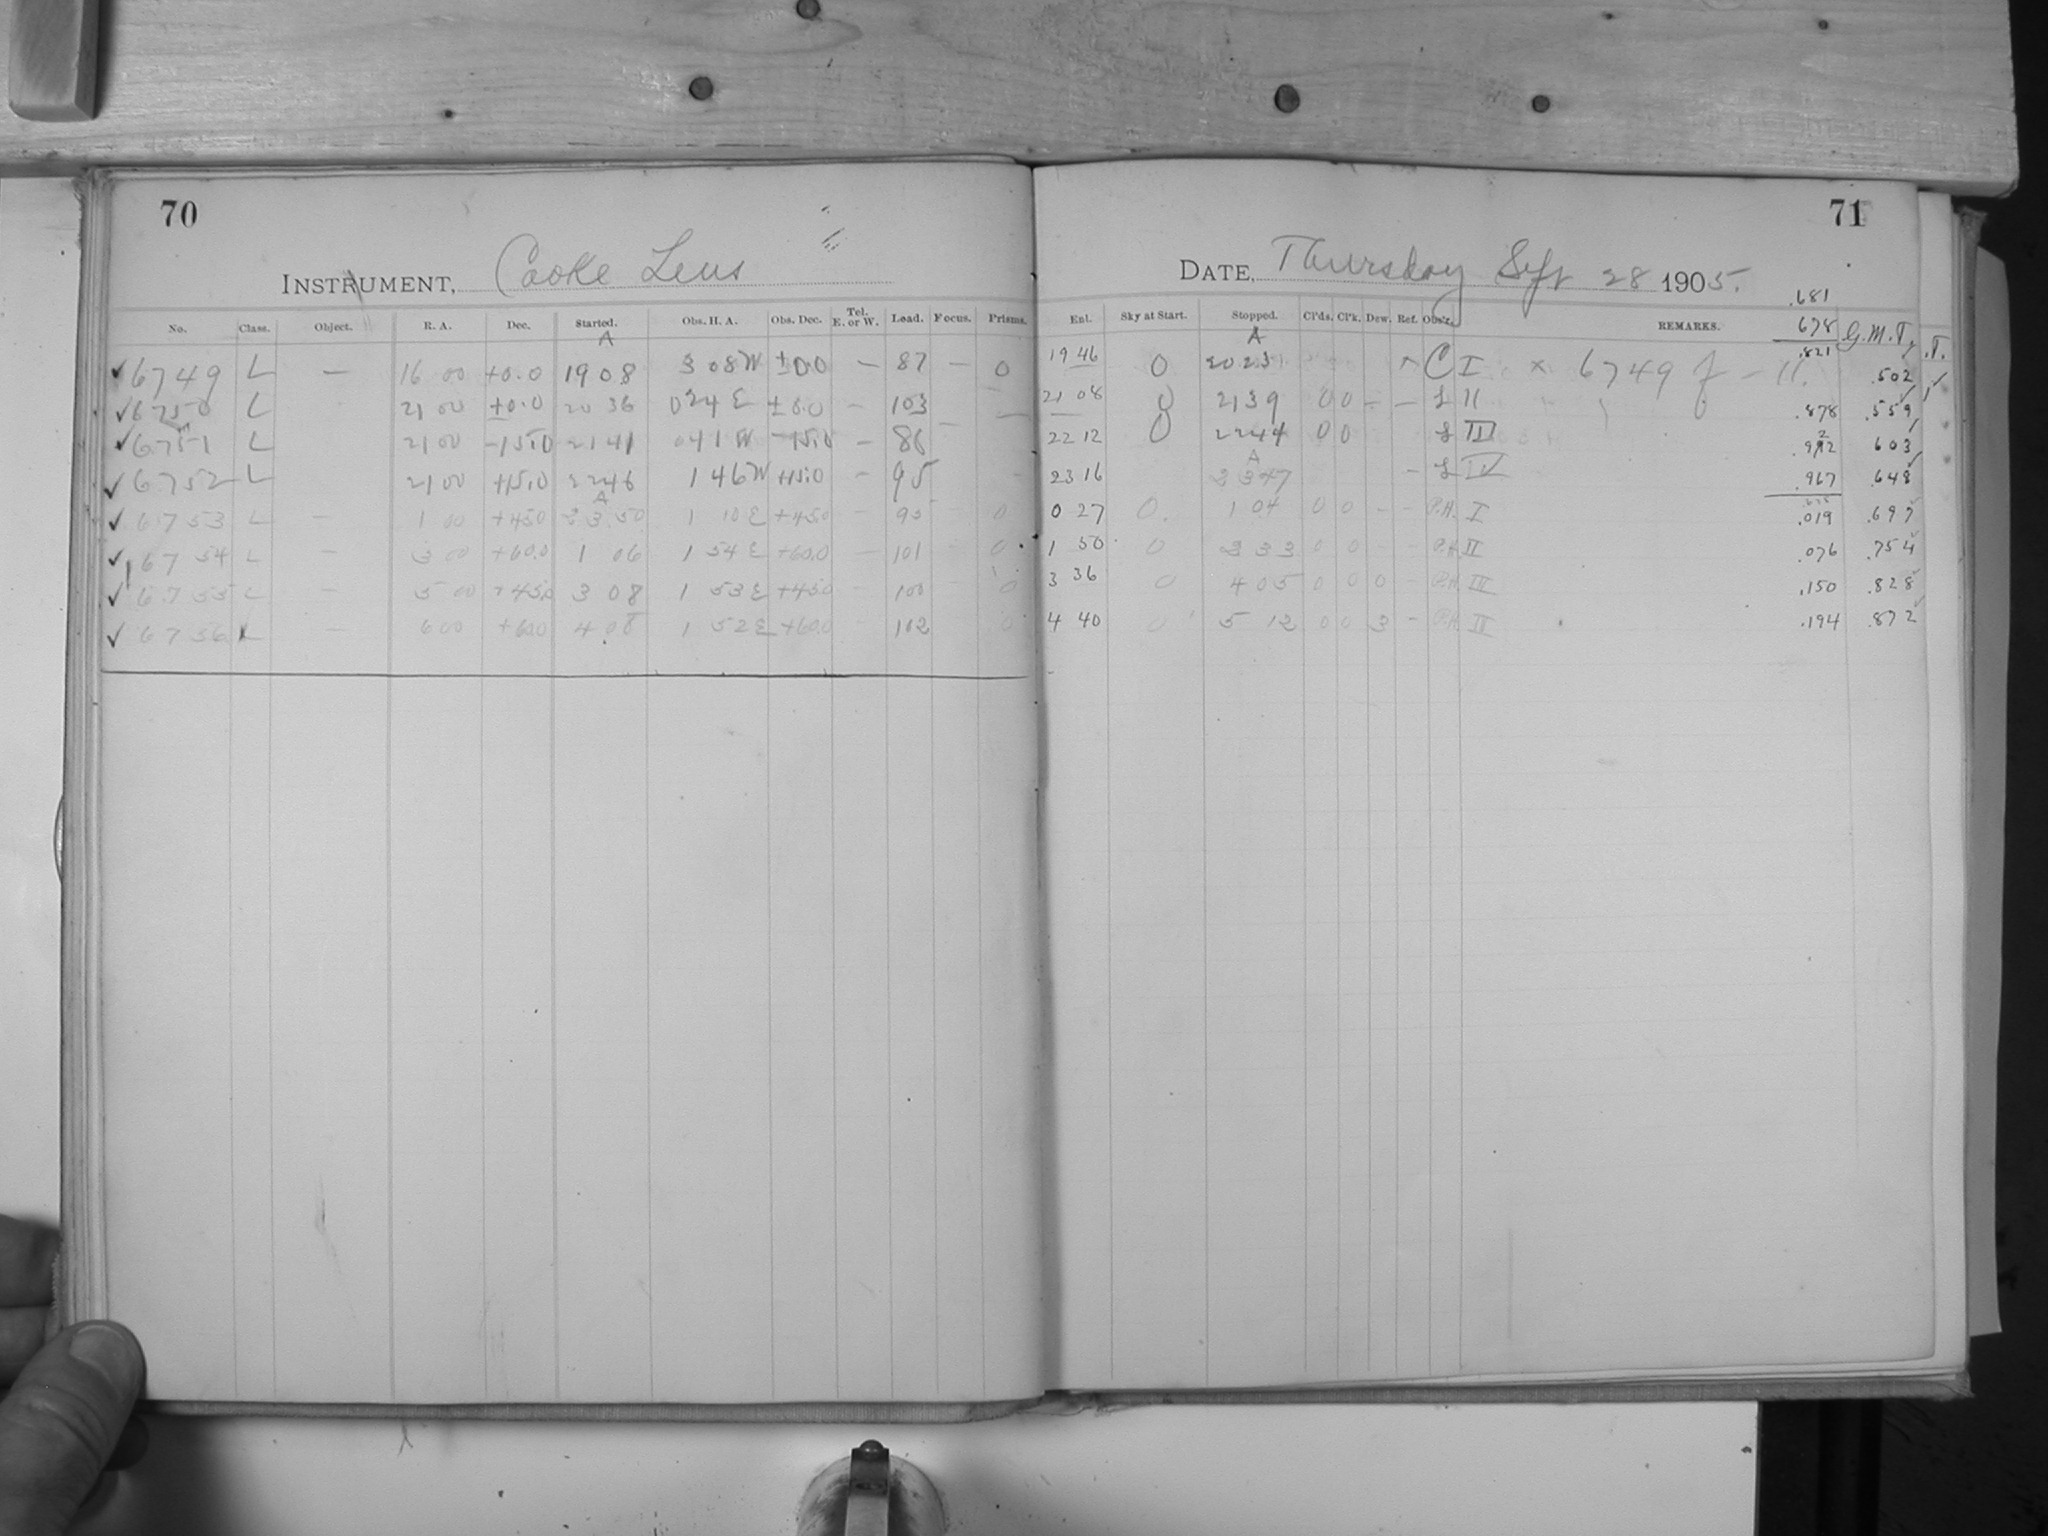 70
INSTRUMENT, Cooke Lens
No. Class. Object. R. A. Dec. Started. Obs. H. A. Obs. Dec. Tel. E. or W. Load. Focus. Prisms.
A
✓ 6749 L — 16 00 +0.0 1908 3 08 W ±0.0 — 87 — 0
✓ 6750 L 21 00 ±0.0 20 36 0 24 E ±0.0 — 103 —
✓ 6751 L 21 00 -15.0 21 41 0 41 W -15.0 — 86
✓ 6752 L 21 00 +15.0 2246 1 46 W +15.0 — 95 -
A
✓ 6753 L — 1 00 +45.0 23 50 1 10 E +45.0 - 95 0
✓ 6754 L — 3 00 +60.0 1 06 1 54 E +60.0 — 101 0
✓ 6755 L — 5 00 +45.0 3 08 1 53 E +45.0 - 100 0
✓ 6756 L — 6 00 +60.0 4 08 1 52 E +60.0 102 0
71
DATE, Thursday Sept 28 1905.
.681
Enl. Sky at Start. Stopped. Cl'ds. Cl'k. Dew. Ref. Obs'r. REMARKS. .678 G.M.T. .T.
A
19 46 0 20 23 C I × 6749 f — 11. .821 .502 ✓
21 08 0 2139 0 0 - - L II .878 .559
22 12 0 2244 0 0 L III .912 2 603
A
23 16 2347 - L IV .967 .648
0 27 0. 1 04 0 0 - - P.H. I .019 .697
1 50 0 2 33 0 0 - - P.H. II .076 .754
3 36 0 4 05 0 0 0 - P.H. III .150 .828
4 40 0 5 12 0 0 3 - P.H. IV .194 .872